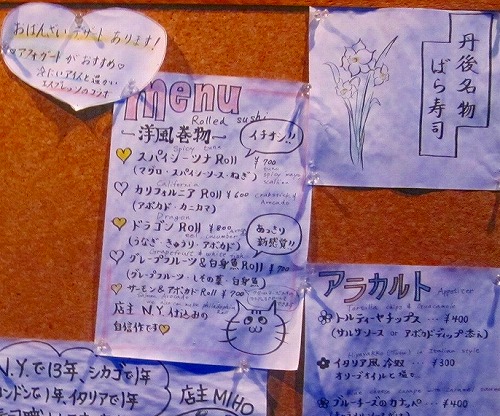 おばんざいデザートあります!
アフォガードがおすすめ♡
冷たいアイスと温かい
エスプレッソのコラボ
menu
Rolled sushi
ー洋風巻物ー
イチオシ!!
Spicy tuna
スパイシーツナ Roll ¥700
(マグロ・スパイシーソース・ねぎ)
California
カリフォルニア Roll ¥600
(アボカド・カニカマ)
Dragon
ドラゴン Roll ¥800
(うなぎ・きゅうり・アボカド)
あっさり
新感覚!!
グレープフルーツ&白身魚 Roll ¥700
(グレープフルーツ・しその葉・白身魚)
サーモン&アボカド Roll ¥700
店主 N.Y.仕込みの
自信作です♡
丹後名物
ばら寿司
アラカルト
Appetizer
トルティーヤチップス… ¥400
(サルサソース or アボカドディップ添え)
イタリア風 冷奴… ¥300
オリーブオイルと塩で…
ブルーチーズのカナッペ… ¥400
N.Y.で13年、シカゴで1年
ロンドンで1年、イタリアで1年
店主 MIHO